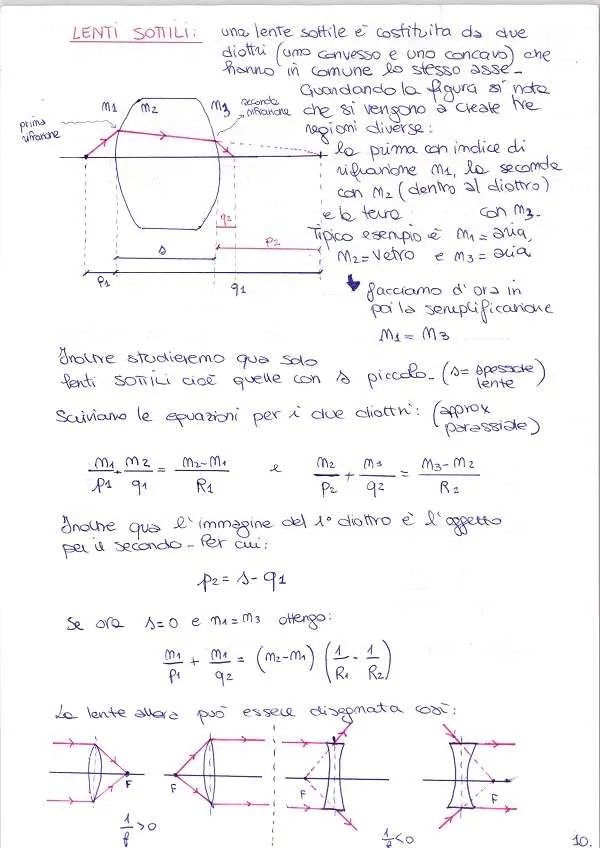 LENTI SOTTILI: una lente sottile è costituita da due
diottri (uno convesso e uno concavo) che
hanno in comune lo stesso asse-
Guardando la figura si nota
che si vengono a creare tre
regioni diverse:
la prima con indice di
rifrazione n1, la seconda
con n2 (dentro al diottro)
e la terza con n3-
Tipico esempio è n1 = aria,
n2 = vetro e n3 = aria
facciamo d'ora in
poi la semplificazione
n1 = n3
prima
rifrazione
n1
n2
n3
seconda
rifrazione
q2
p2
s
p1
q1
Inoltre studieremo qua solo
lenti SOTTILI cioè quelle con s piccolo- (s = spessore
lente)
Scriviamo le equazioni per i due diottri: (approx
parassiale)
n1/p1 + n2/q1 = n2-n1/R1 e n2/p2 + n3/q2 = n3-n2/R2
Inoltre qua l'immagine del 1° diottro è l'oggetto
per il secondo- Per cui:
p2 = s - q1
Se ora s=0 e n1=n3 ottengo:
n1/p1 + n1/q2 = (n2-n1) (1/R1 - 1/R2)
La lente allora può essere disegnata così:
F
F
F
F
1/f > 0
1/f < 0
10.